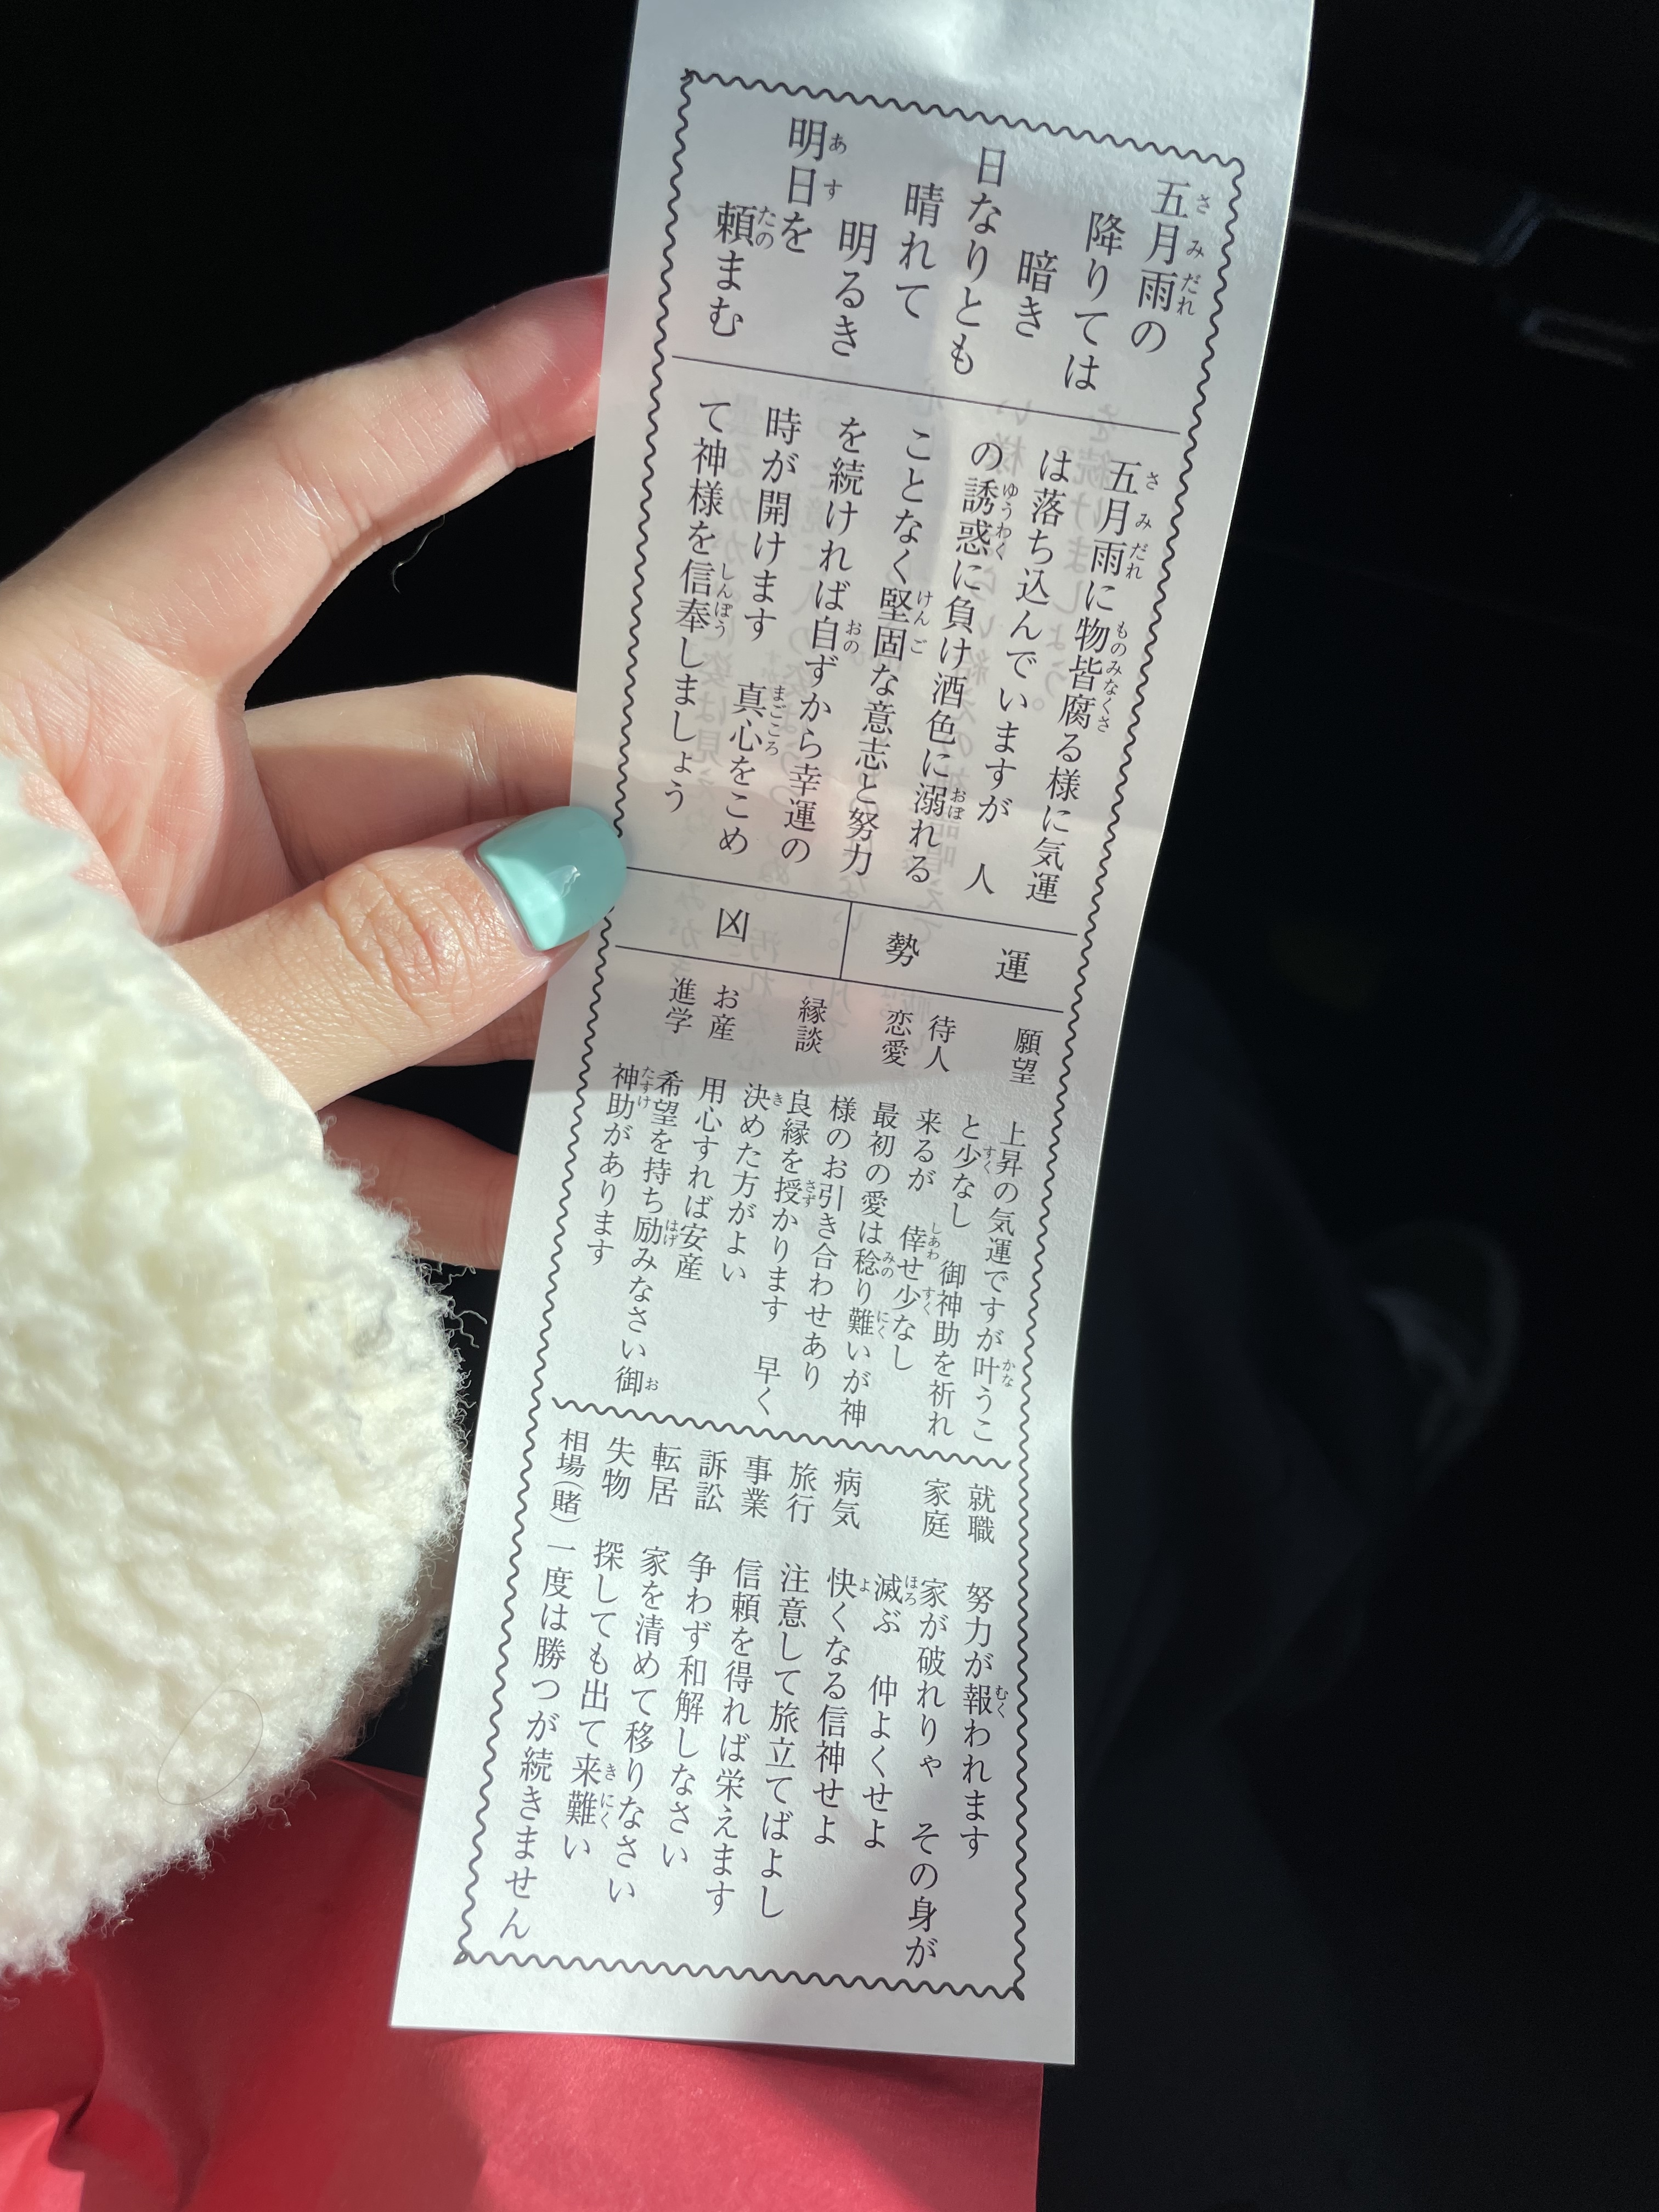 五月雨の
降りては
暗き
日なりとも
晴れて
明るき
明日を
頼まむ
五月雨に物皆腐る様に気運
は落ち込んでいますが 人
の誘惑に負け酒色に溺れる
ことなく堅固な意志と努力
を続ければ自ずから幸運の
時が開けます 真心をこめ
て神様を信奉しましょう
運勢
凶
願望 上昇の気運ですが叶うこ
と少なし 御神助を祈れ
待人 来るが 倖せ少なし
恋愛 最初の愛は稔り難いが神
様のお引き合わせあり
縁談 良縁を授かります 早く
決めた方がよい
お産 用心すれば安産
進学 希望を持ち励みなさい御
神助があります
就職 努力が報われます
家庭 家が破れりゃ その身が
滅ぶ 仲よくせよ
病気 快くなる信神せよ
旅行 注意して旅立てばよし
事業 信頼を得れば栄えます
訴訟 争わず和解しなさい
転居 家を清めて移りなさい
失物 探しても出て来難い
相場(賭) 一度は勝つが続きません